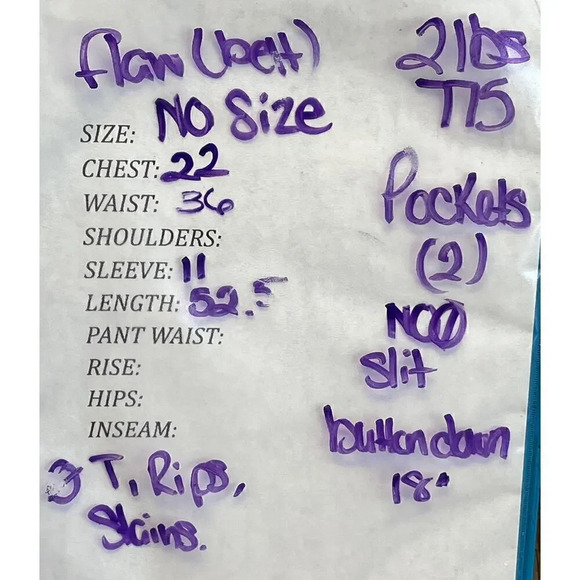 flaw (belt)
2 lbs
715
SIZE: NO Size
CHEST: 22
WAIST: 36
SHOULDERS:
SLEEVE: 11
LENGTH: 52.5
PANT WAIST:
RISE:
HIPS:
INSEAM:
Pockets
(2)
NO
Slit
button down
18"
T, Rips,
Stains.